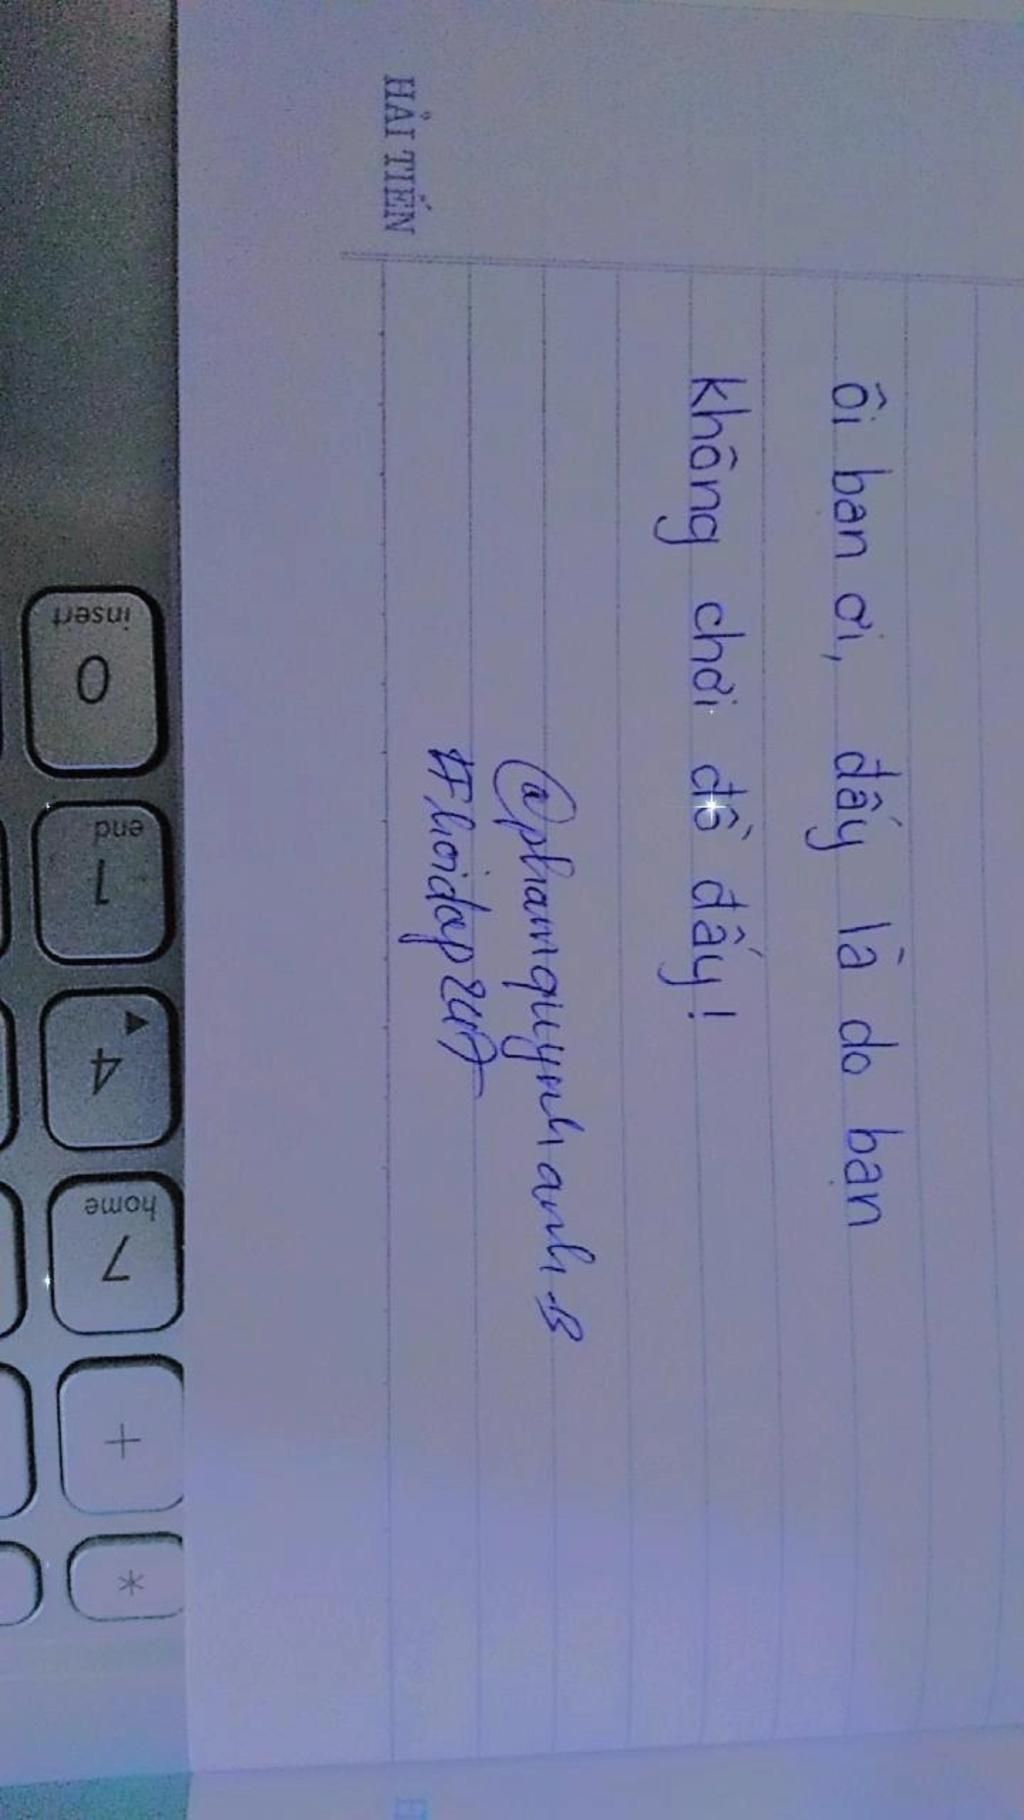 ôi bạn ơi, đấy là do bạn
không chơi đồ đấy!
@phamquynhanh_B
#hoidaprurt
HẢI TIẾN
insert
0
end
1
4
home
7
+
*